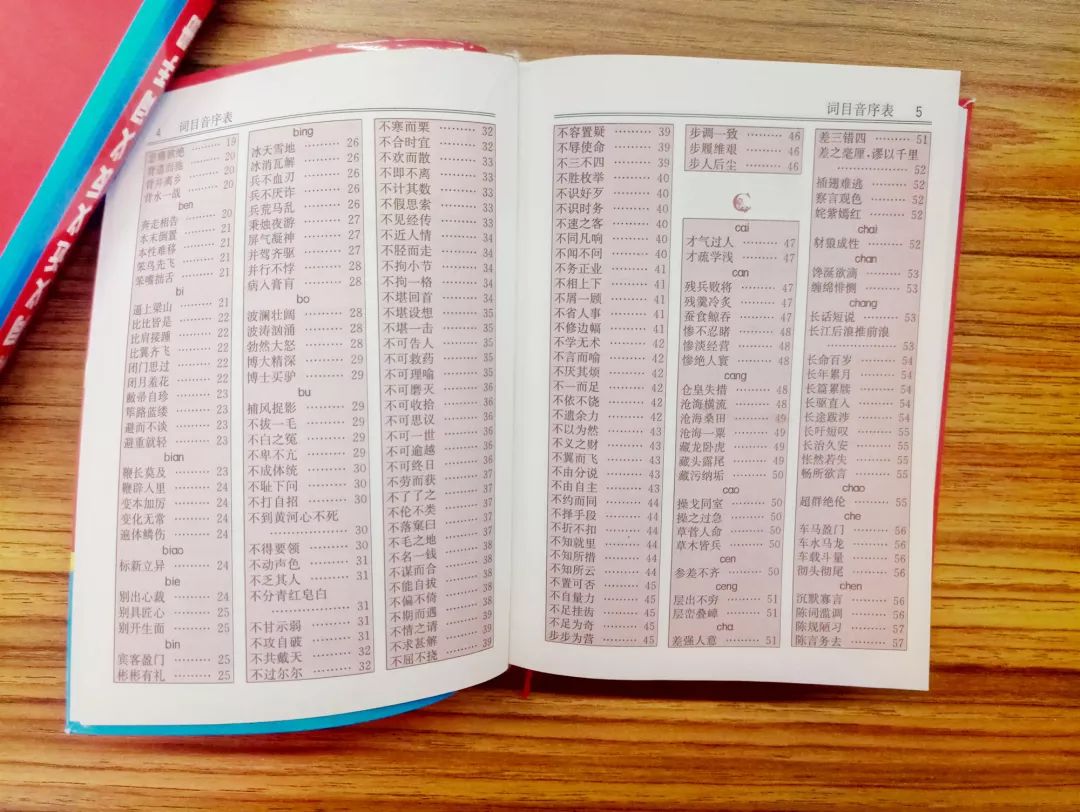 4 词目音序表
悲痛欲绝 ……… 19
背道而驰 ……… 20
背井离乡 ……… 20
背水一战 ……… 20
ben
奔走相告 ……… 20
本末倒置 ……… 21
本性难移 ……… 21
笨鸟先飞 ……… 21
笨嘴拙舌 ……… 21
bi
逼上梁山 ……… 21
比比皆是 ……… 22
比肩接踵 ……… 22
比翼齐飞 ……… 22
闭门思过 ……… 22
闭月羞花 ……… 22
敝帚自珍 ……… 22
筚路蓝缕 ……… 22
避而不谈 ……… 23
避重就轻 ……… 23
bian
鞭长莫及 ……… 23
鞭辟入里 ……… 24
变本加厉 ……… 24
变化无常 ……… 24
遍体鳞伤 ……… 24
biao
标新立异 ……… 24
bie
别出心裁 ……… 24
别具匠心 ……… 25
别开生面 ……… 25
bin
宾客盈门 ……… 25
彬彬有礼 ……… 25
bing
冰天雪地 ……… 26
冰消瓦解 ……… 26
兵不血刃 ……… 26
兵不厌诈 ……… 26
兵荒马乱 ……… 26
秉烛夜游 ……… 27
屏气凝神 ……… 27
并驾齐驱 ……… 27
并行不悖 ……… 28
病入膏肓 ……… 28
bo
波澜壮阔 ……… 28
波涛汹涌 ……… 28
勃然大怒 ……… 28
博大精深 ……… 29
博士买驴 ……… 29
bu
捕风捉影 ……… 29
不拔一毛 ……… 29
不白之冤 ……… 29
不卑不亢 ……… 29
不成体统 ……… 30
不耻下问 ……… 30
不打自招 ……… 30
不到黄河心不死
……… 30
不得要领 ……… 30
不动声色 ……… 31
不乏其人 ……… 31
不分青红皂白
……… 31
不甘示弱 ……… 31
不攻自破 ……… 31
不共戴天 ……… 32
不过尔尔 ……… 32
不寒而栗 ……… 32
不合时宜 ……… 32
不欢而散 ……… 33
不即不离 ……… 33
不计其数 ……… 33
不假思索 ……… 33
不见经传 ……… 33
不近人情 ……… 34
不胫而走 ……… 34
不拘小节 ……… 34
不拘一格 ……… 34
不堪回首 ……… 34
不堪设想 ……… 34
不堪一击 ……… 35
不可告人 ……… 35
不可救药 ……… 35
不可理喻 ……… 35
不可磨灭 ……… 36
不可收拾 ……… 36
不可思议 ……… 36
不可一世 ……… 36
不可逾越 ……… 36
不可终日 ……… 36
不劳而获 ……… 37
不了了之 ……… 37
不伦不类 ……… 37
不落窠臼 ……… 37
不毛之地 ……… 38
不名一钱 ……… 38
不谋而合 ……… 38
不能自拔 ……… 38
不偏不倚 ……… 38
不期而遇 ……… 39
不情之请 ……… 39
不求甚解 ……… 39
不屈不挠 ……… 39
词目音序表 5
不容置疑 ……… 39
不辱使命 ……… 39
不三不四 ……… 39
不胜枚举 ……… 40
不识好歹 ……… 40
不识时务 ……… 40
不速之客 ……… 40
不同凡响 ……… 40
不闻不问 ……… 40
不务正业 ……… 41
不相上下 ……… 41
不屑一顾 ……… 41
不省人事 ……… 41
不修边幅 ……… 41
不学无术 ……… 42
不言而喻 ……… 42
不厌其烦 ……… 42
不一而足 ……… 42
不依不饶 ……… 42
不遗余力 ……… 42
不以为然 ……… 43
不义之财 ……… 43
不翼而飞 ……… 43
不由分说 ……… 43
不由自主 ……… 43
不约而同 ……… 44
不择手段 ……… 44
不折不扣 ……… 44
不知就里 ……… 44
不知所措 ……… 44
不知所云 ……… 44
不置可否 ……… 45
不自量力 ……… 45
不足挂齿 ……… 45
不足为奇 ……… 45
步步为营 ……… 45
步调一致 ……… 46
步履维艰 ……… 46
步人后尘 ……… 46
C
cai
才气过人 ……… 47
才疏学浅 ……… 47
can
残兵败将 ……… 47
残羹冷炙 ……… 47
蚕食鲸吞 ……… 47
惨不忍睹 ……… 48
惨淡经营 ……… 48
惨绝人寰 ……… 48
cang
仓皇失措 ……… 48
沧海横流 ……… 48
沧海桑田 ……… 49
沧海一粟 ……… 49
藏龙卧虎 ……… 49
藏头露尾 ……… 49
藏污纳垢 ……… 50
cao
操戈同室 ……… 50
操之过急 ……… 50
草菅人命 ……… 50
草木皆兵 ……… 50
cen
参差不齐 ……… 50
ceng
层出不穷 ……… 51
层峦叠嶂 ……… 51
cha
差强人意 ……… 51
差三错四 ……… 51
差之毫厘,谬以千里
……… 52
插翅难逃 ……… 52
察言观色 ……… 52
姹紫嫣红 ……… 52
chai
豺狼成性 ……… 52
chan
馋涎欲滴 ……… 53
缠绵悱恻 ……… 53
chang
长话短说 ……… 53
长江后浪推前浪
……… 53
长命百岁 ……… 54
长年累月 ……… 54
长篇累牍 ……… 54
长驱直入 ……… 54
长途跋涉 ……… 54
长吁短叹 ……… 55
长治久安 ……… 55
怅然若失 ……… 55
畅所欲言 ……… 55
chao
超群绝伦 ……… 55
che
车马盈门 ……… 56
车水马龙 ……… 56
车载斗量 ……… 56
彻头彻尾 ……… 56
chen
沉默寡言 ……… 56
陈词滥调 ……… 56
陈规陋习 ……… 57
陈言务去 ……… 57